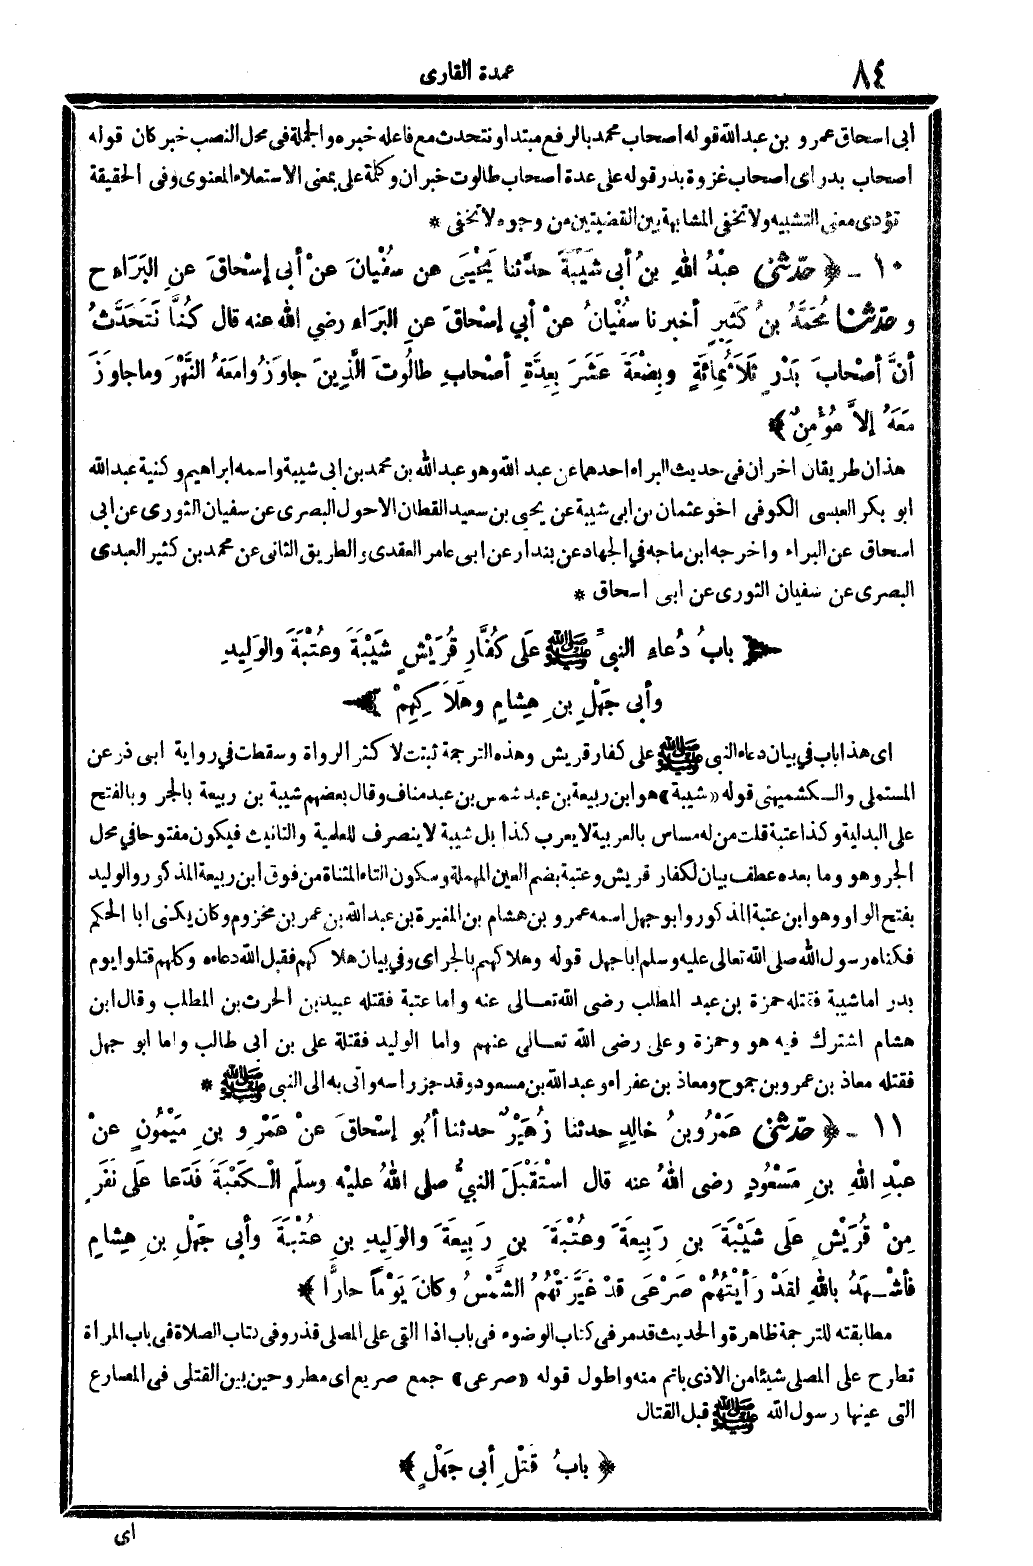 ٨٤
عمدة القارى
ابى اسحاق عمرو بن عبدالله قوله اصحاب محمد بالرفع مبتدا ونتحدث مع فاعله خبره والجملة فى محل النصب خبر كان قوله
اصحاب بدر اى اصحاب غزوة بدر قوله على عدة اصحاب طالوت خبر ان وكلمة على بمعنى الاستعلاء المعنوى وفى الحقيقة
تؤدى معنى التشبيه ولا تخفى المشابهة بين القضيتين من وجوه لا تخفى *
١٠ - ﴿ حدّثنى عبْدُ اللهِ بنُ أبى شَيْبَةَ حدّثنا يَحْيَى عن سفْيانَ عنْ أبى إسْحاقَ عنِ البَرَاءِ ح
و حدّثنا مُحَمَّدُ بنُ كَثِيرٍ أخبرنا سُفْيانُ عنْ أبي إسْحاقَ عنِ البَرَاءِ رضي الله عنه قال كُنَّا نَتَحَدَّثُ
أنَّ أصْحابَ بَدْرٍ ثَلَاثُمِائَةٍ وبِضْعَةَ عَشَرَ بِعِدَّةِ أصْحابِ طالُوتَ الَّذِينَ جاوَزُوا مَعَهُ النَّهْرَ وما جاوَزَ
مَعَهُ إلاَّ مُؤْمِنٌ ﴾
هذان طريقان اخران فى حديث البراء احدهما عن عبد الله وهو عبدالله بن محمد بن ابى شيبة واسمه ابراهيم وكنية عبدالله
ابو بكر العبسى الكوفى اخو عثمان بن ابى شيبة عن يحيى بن سعيد القطان الاحول البصرى عن سفيان الثورى عن ابى
اسحاق عن البراء واخرجه ابن ماجه في الجهاد عن بندار عن ابى عامر العقدى والطريق الثانى عن محمد بن كثير العبدى
البصرى عن سفيان الثورى عن ابى اسحاق *
باب دُعاءِ النبيِّ ﷺ عَلَى كُفَّارِ قُرَيْشٍ شَيْبَةَ وعُتْبَةَ والوَلِيدِ
وأبى جَهْلِ بنِ هِشامٍ وهَلَاكِهِمْ
اى هذا باب في بيان دعاء النبى ﷺ على كفار قريش وهذه الترجمة ثبتت لاكثر الرواة وسقطت في رواية ابى ذر عن
المستملى والكشميهنى قوله «شيبة» هو ابن ربيعة بن عبد شمس بن عبد مناف وقال بعضهم شيبة بن ربيعة بالجر وبالفتح
على البدلية وكذا عتبة قلت من له مساس بالعربية لا يعرب كذا بل شيبة لا ينصرف للعلمية والتانيث فيكون مفتوحا في محل
الجر وهو وما بعده عطف بيان لكفار قريش وعتبة بضم العين المهملة وسكون التاء المثناة من فوق ابن ربيعة المذكور والوليد
بفتح الواو وهو ابن عتبة المذكور وابو جهل اسمه عمرو بن هشام بن المغيرة بن عبدالله بن عمر بن مخزوم وكان يكنى ابا الحكم
فكناه رسول الله صلى الله تعالى عليه وسلم ابا جهل قوله وهلاكهم بالجر اى وفي بيان هلاكهم فقبل الله دعاءه وكلهم قتلوا يوم
بدر اما شيبة فقتله حمزة بن عبد المطلب رضى الله تعـالى عنه واما عتبة فقتله عبيد بن الحرث بن المطلب وقال ابن
هشام اشترك فيه هو وحمزة وعلى رضى الله تعـالى عنهم واما الوليد فقتلة على بن ابى طالب واما ابو جهل
فقتله معاذ بن عمرو بن جموح ومعاذ بن عفراء وعبدالله بن مسعود وقد جز راسه واتى به الى النبى ﷺ *
١١ - ﴿ حدّثنى عَمْرُو بنُ خالِدٍ حدثنا زُهَيْرٌ حدثنا أبُو إسْحاقَ عنْ عَمْرِو بنِ مَيْمُونٍ عنْ
عبْدِ اللهِ بنِ مَسْعُودٍ رضى اللهُ عنه قال اسْتَقْبَلَ النبيُّ صلى اللهُ عليْه وسلّم الْـكَعْبَةَ فَدَعا عَلَى نَفَرٍ
مِنْ قُرَيْشٍ عَلَى شَيْبَةَ بنِ رَبِيعَةَ وعُتْبَةَ بنِ رَبِيعَةَ والوَلِيدِ بنِ عُتْبَةَ وأبى جَهْلِ بنِ هِشامٍ
فأشْـهَدُ باللهِ لقَدْ رَأيْتُهُمْ صَرْعَى قَدْ غَيَّرَتْهُمُ الشَّمْسُ وكانَ يَوْماً حارًّا ﴾
مطابقته للترجمة ظاهرة والحديث قد مر فى كتاب الوضوء فى باب اذا القى على المصلى قذر وفى كتاب الصلاة فى باب المراة
تطرح على المصلى شيئا من الاذى باتم منه واطول قوله «صرعى» جمع صريع اى مطروحين بين القتلى فى المصارع
التى عينها رسول الله ﷺ قبل القتال
﴿ بابُ قَتْلِ أبى جَهْلٍ ﴾
اى